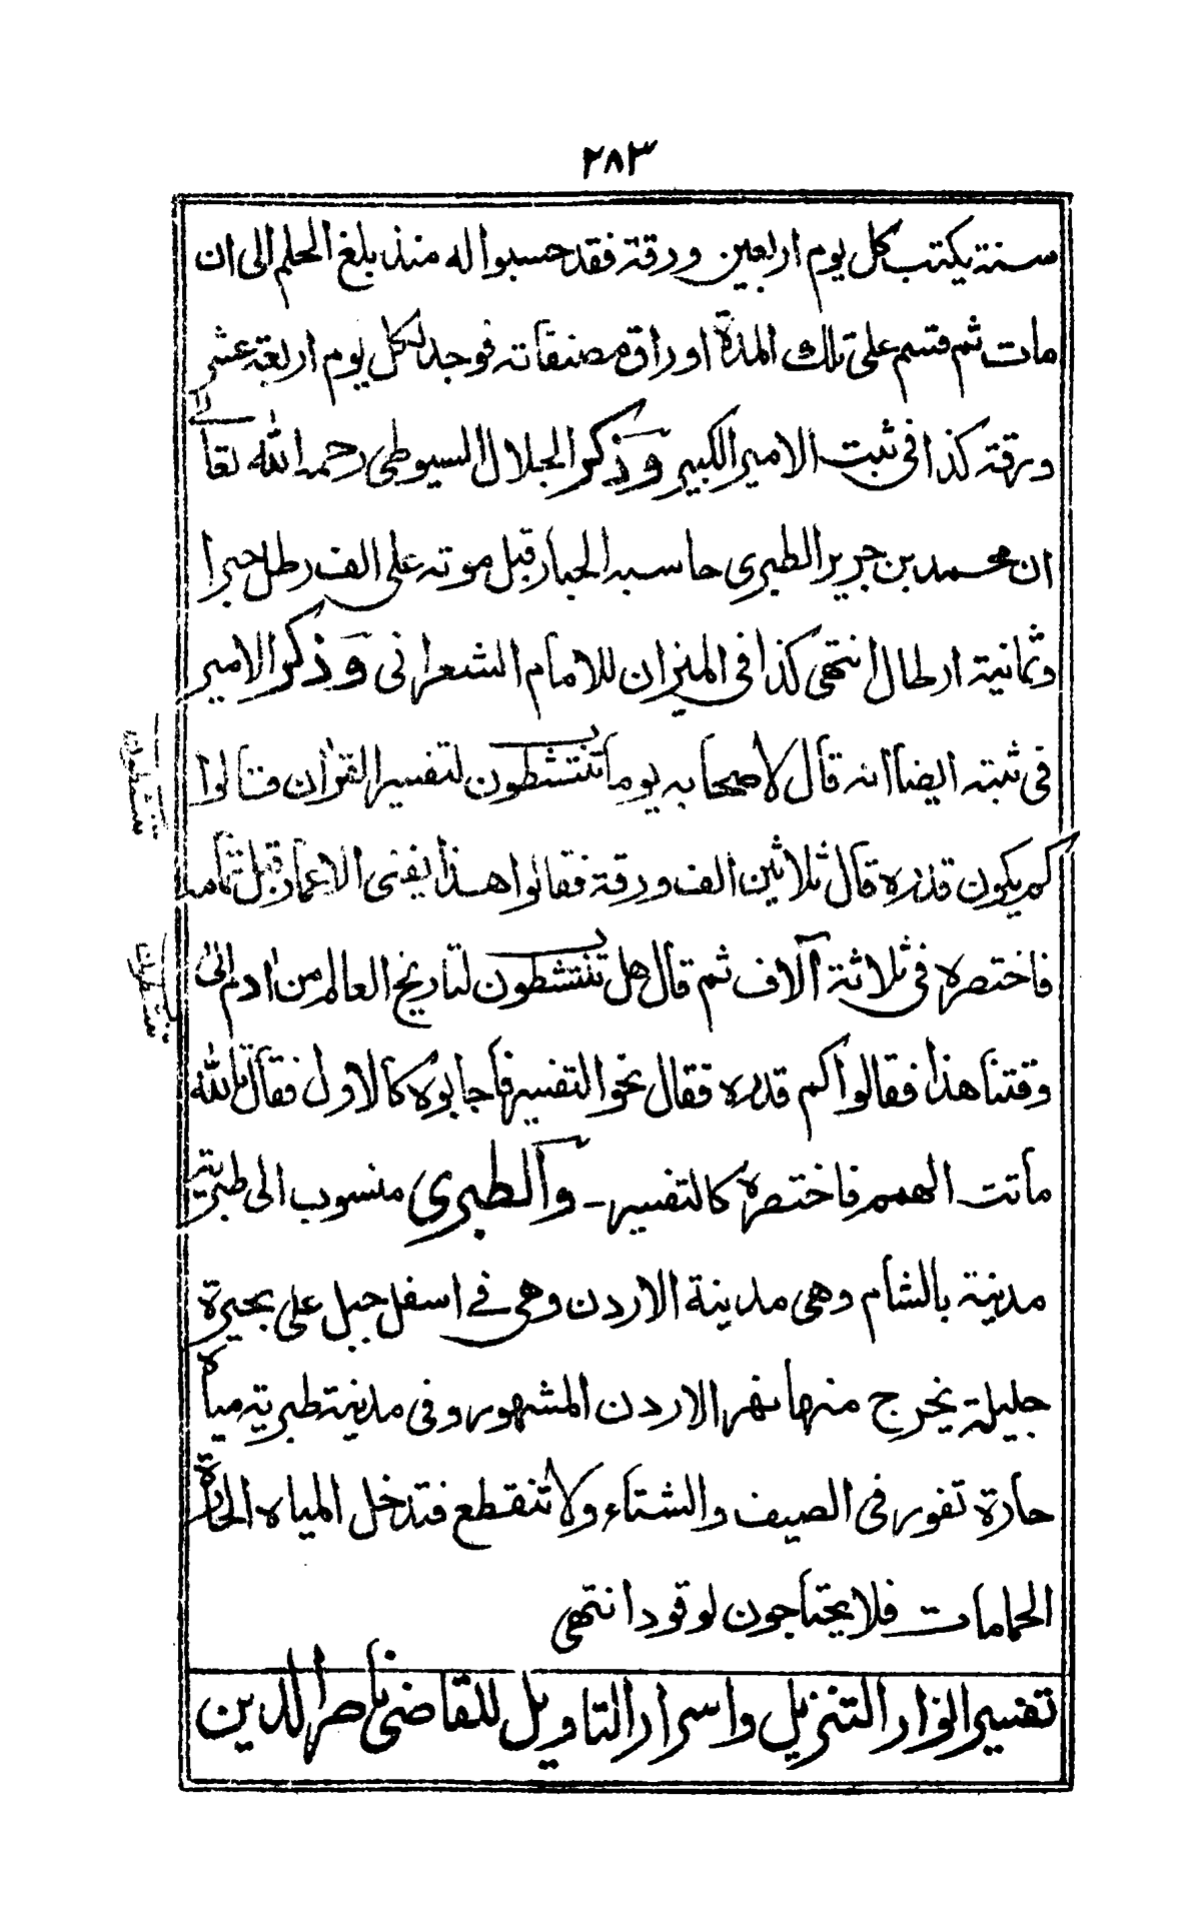 ٢٨٣
سنة يكتب كل يوم اربعين ورقة فقد حسبوا له منذ بلغ الحلم الى ان
مات ثم قسم على تلك المدة اوراق مصنفاته فوجد لكل يوم اربعة عشر
ورقة كذا فى ثبت الامير الكبير وذكر الجلال السيوطى رحمه الله تعالى
ان محمد بن جرير الطبرى حاسبه الحبار قبل موته على الف رطل حبرا
وثمانية ارطال انتهى كذا فى الميزان للامام الشعرانى وذكر الامير
فى ثبته ايضا انه قال لاصحابه يوما تنتشطون لتفسير القران قالوا
كم يكون قدره قال ثلاثين الف ورقة فقالوا هذا يفنى الاعمار قبل تمامه
فاختصره فى ثلاثة آلاف ثم قال هل تنتشطون لتاريخ العالم من ادم الى
وقتنا هذا فقالوا كم قدره فقال نحو التفسير فاجابوه كالاول فقال تالله
ماتت الهمم فاختصره كالتفسير - والطبرى منسوب الى طبرية
مدينة بالشام وهى مدينة الاردن وهى فى اسفل جبل على بحيرة
جليلة يخرج منها نهر الاردن المشهور وفى مدينة طبرية مياه
حارة تفور فى الصيف والشتاء ولا تنقطع فتدخل المياه الحارة
الحمامات فلا يحتاجون لوقود انتهى
تفسير انوار التنزيل واسرار التاويل للقاضى ناصر الدين